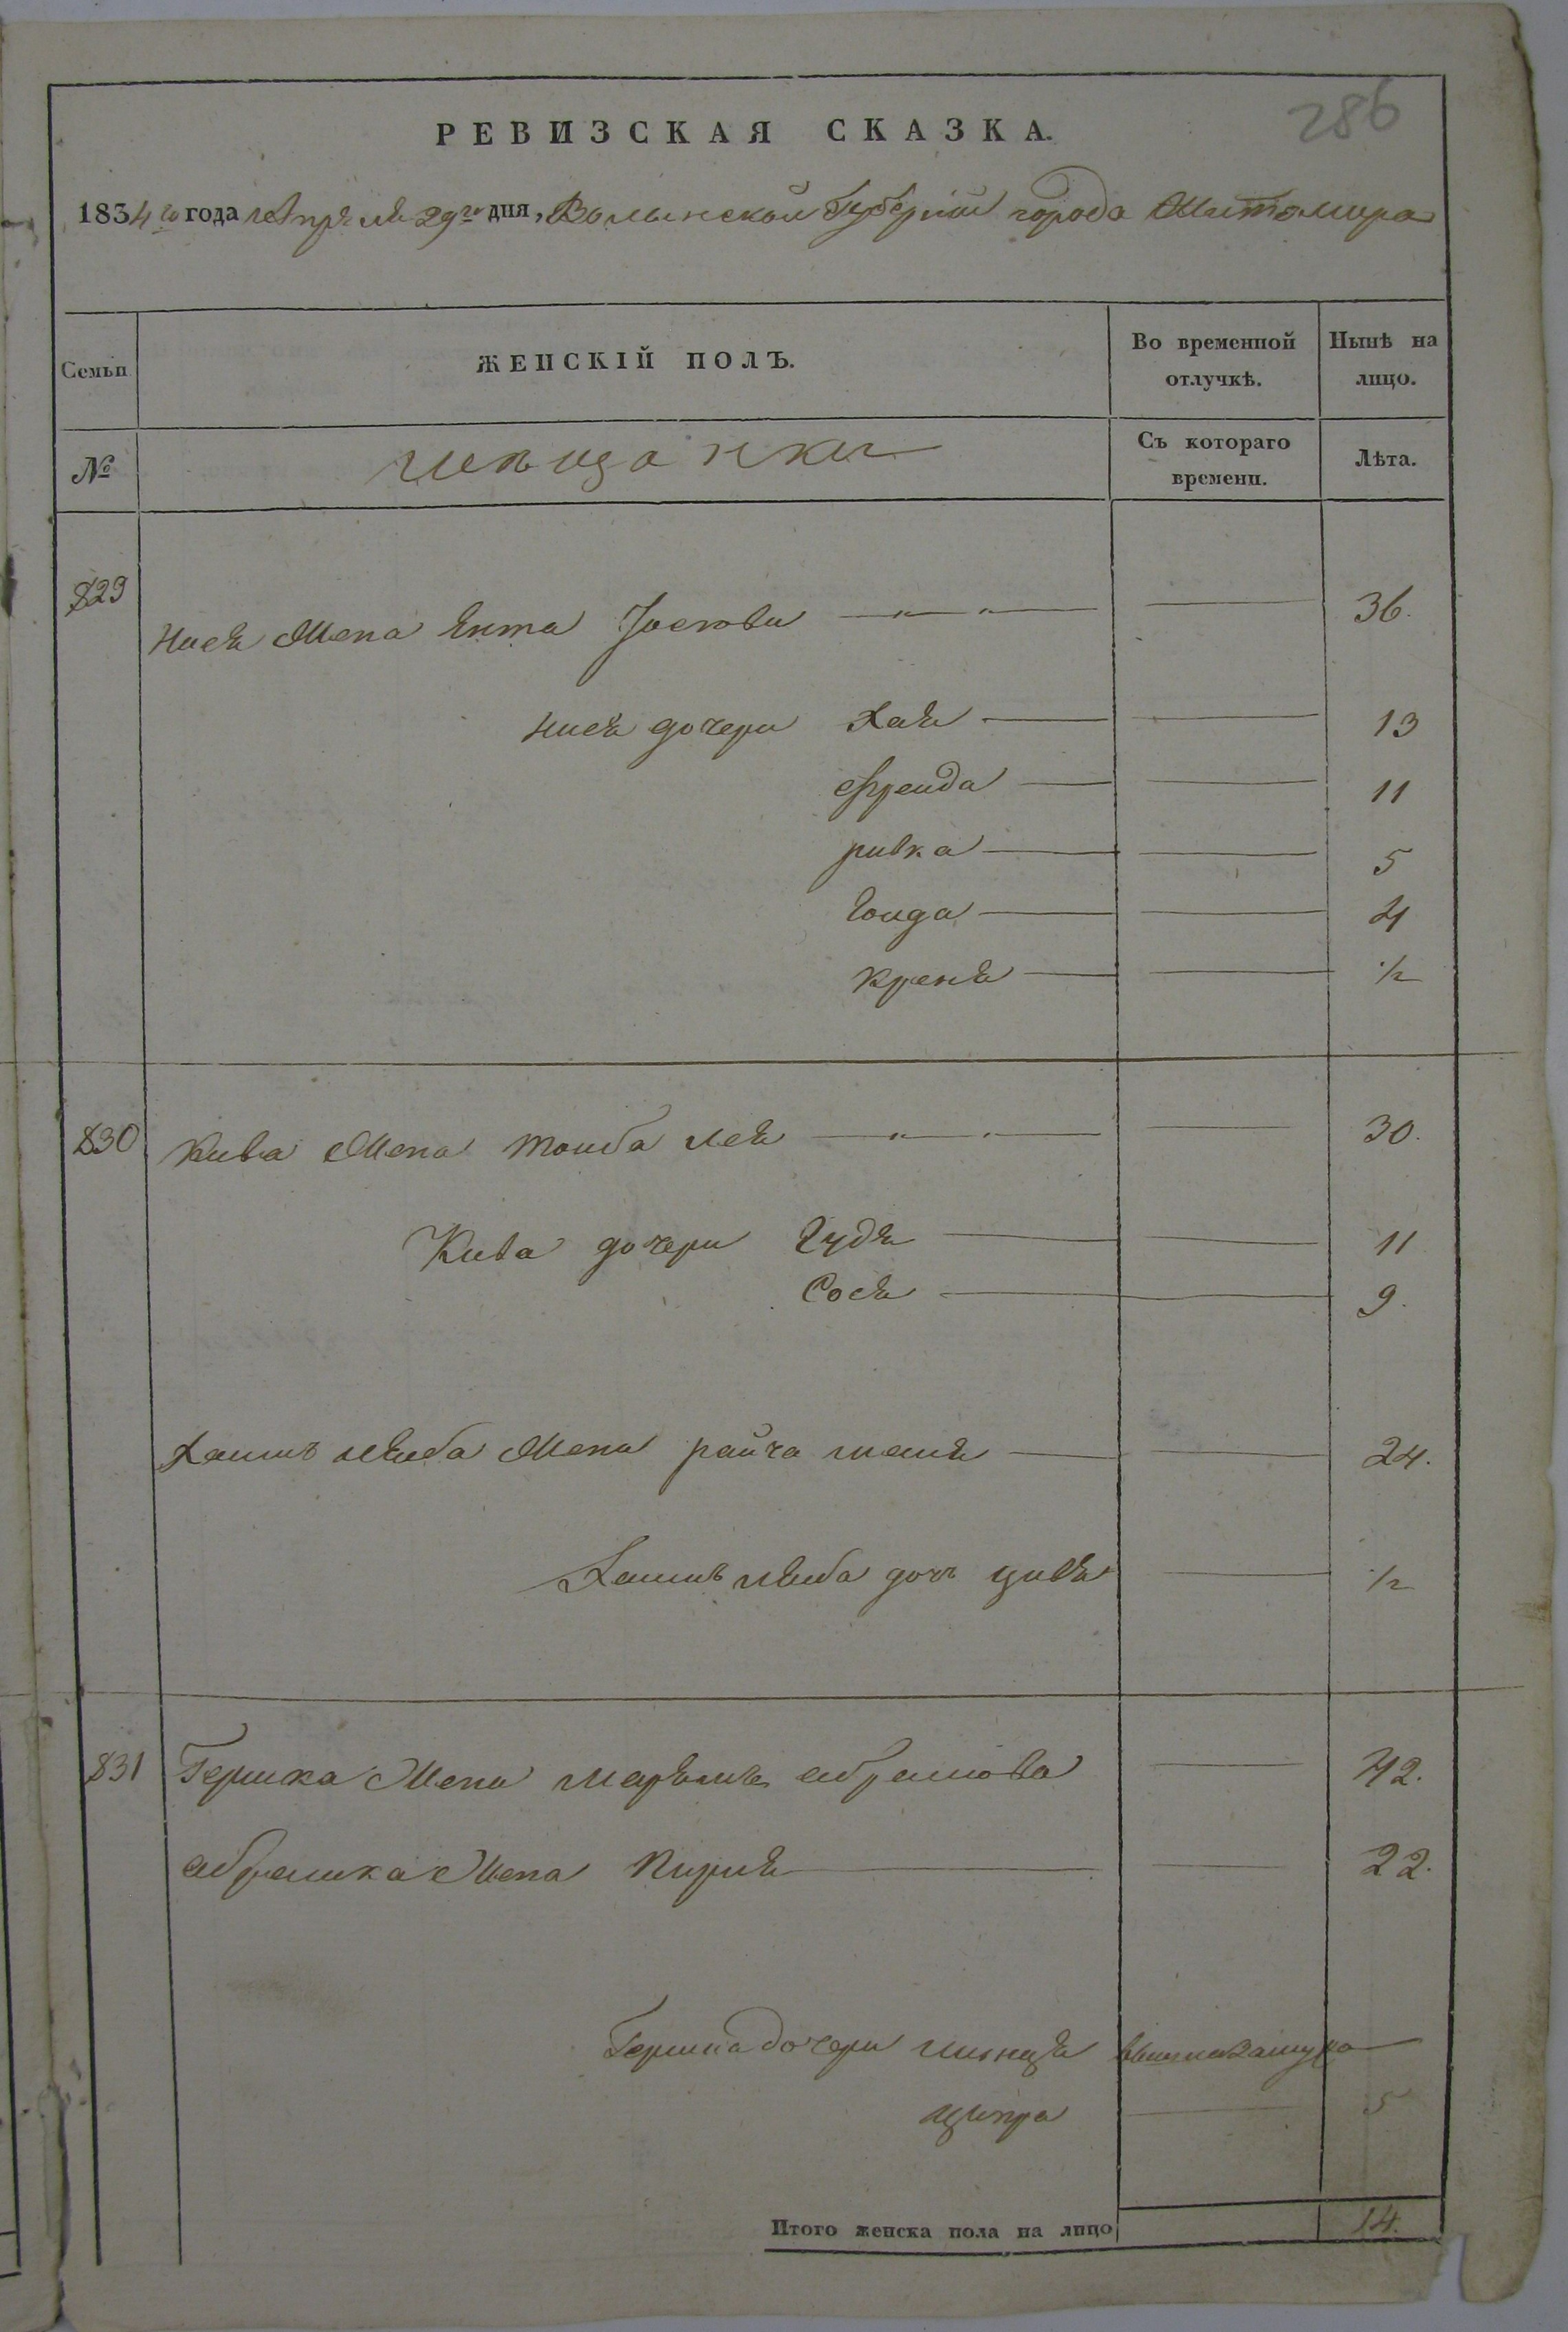 286
РЕВИЗСКАЯ СКАЗКА.
1834го года Апреля 29го дня, Волынской Губернии города Житомира
Семьи
ЖЕНСКІЙ ПОЛЪ.
Во временной отлучкѣ.
Нынѣ на лицо.
№
мещанки
Съ котораго времени.
Лѣта.
829 Нося жена Ента Иосьова — " — " — — 36.
Нося дочери Хая — — 13
Фрейда — — 11
ривка — — 5
Гоида — — 4
Креня — — 1/2
830 Кива жена тоиба лея — " — " — — 30.
Кива дочери Гудя — — 11
Сося — — 9.
Хаимъ лейба жена райча — — 24.
Хаимъ лейба дочь цивя — 1/2
831 Гершка жена марьямъ абрамова — 42.
абрамка жена — — 22.
Гершка дочери минця вышла замужъ —
ципра — 5
Итого женска пола на лицо 14.